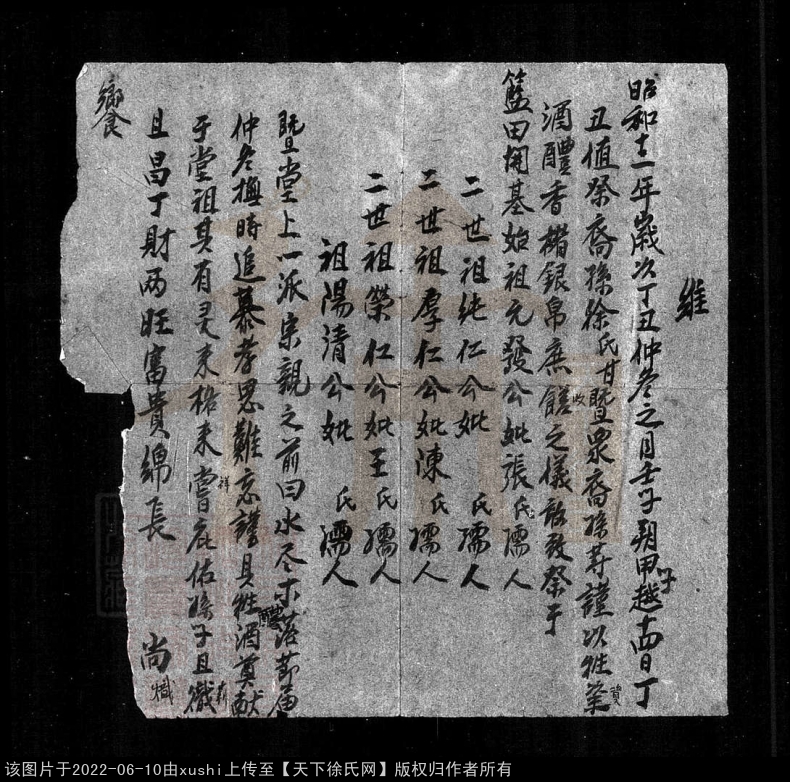 維
昭和十二年歲次丁丑仲冬之月壬子朔越十四日丁
丑值祭裔孫徐氏甘暨眾裔孫等謹以牲
酒醴香楮銀帛庶饈之儀敢致祭于
籃田開基始祖元發公妣張氏孺人
二世祖純仁公妣 氏孺人
二世祖厚仁公妣陳氏孺人
二世祖榮仁公妣王氏孺人
祖陽清公妣 氏孺人
暨堂上一派宗親之前曰水尽木落節屆
仲冬撫時追慕孝思難忘謹具牲酒奠献
于堂祖其有灵來格來嘗庇佑孫子且熾
且昌丁財兩旺富貴綿長 尚
饗
该图片于2022-06-10由xushi上传至【天下徐氏网】版权归作者所有